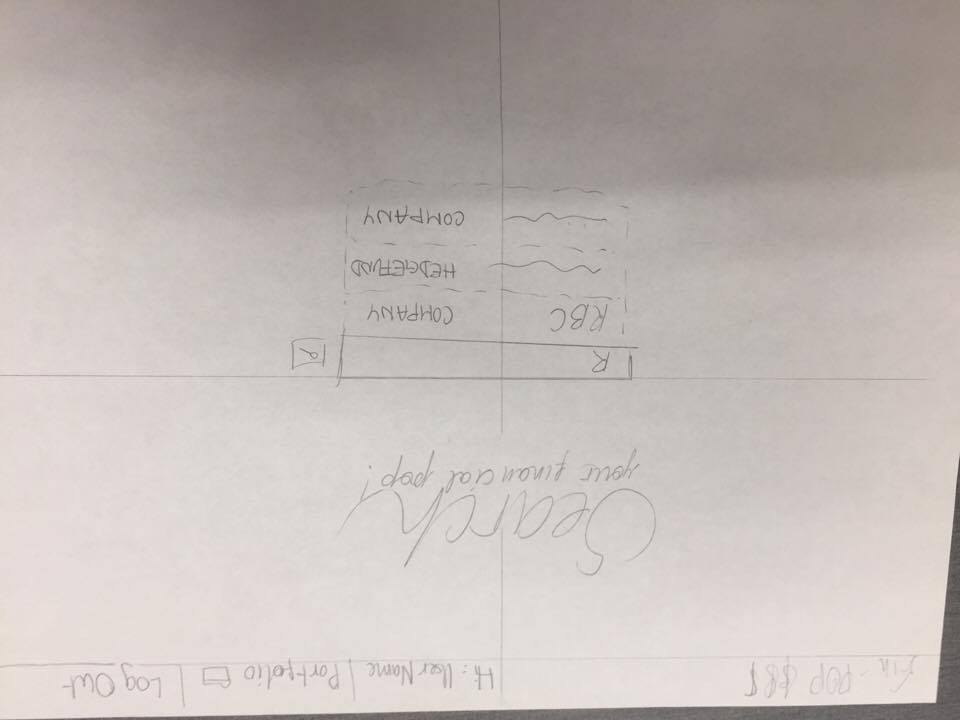 Fin-POP $$$ Hi: UserName | Portfolio | Log Out
Search
your financial pop!
R
RBC COMPANY
HEDGEFUND
COMPANY